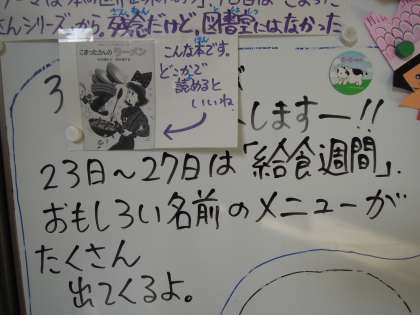 さんシリーズから。残念だけど、図書室にはなかった
こまったさんの
ラーメン
こんな本です。
どこかで
読めると
いいね
3
します―!!
23日～27日は「給食週間」.
おもしろい名前のメニューが
たくさん
出てくるよ。